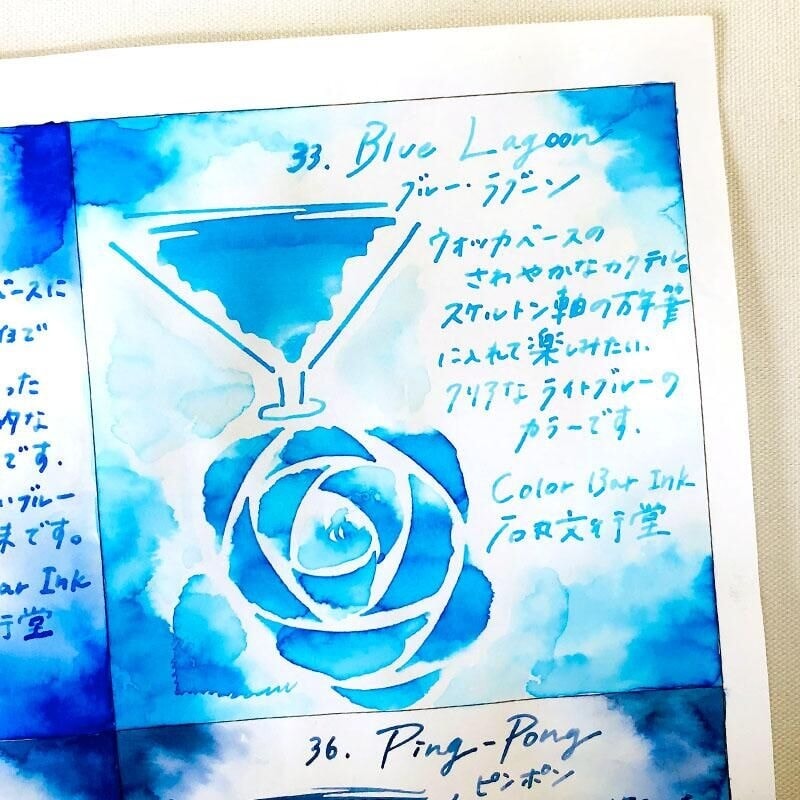 ベースに
った
的な
です.
いブルー
です。
Bar Ink
行堂
33. Blue Lagoon
ブルー・ラグーン
ウォッカベースの
さわやかなカクテル。
スケルトン軸の万年筆
に入れて楽しみたい.
クリアな ライトブルーの
カラーです.
Color Bar Ink
石丸文行堂
36. Ping-Pong
ピンポン